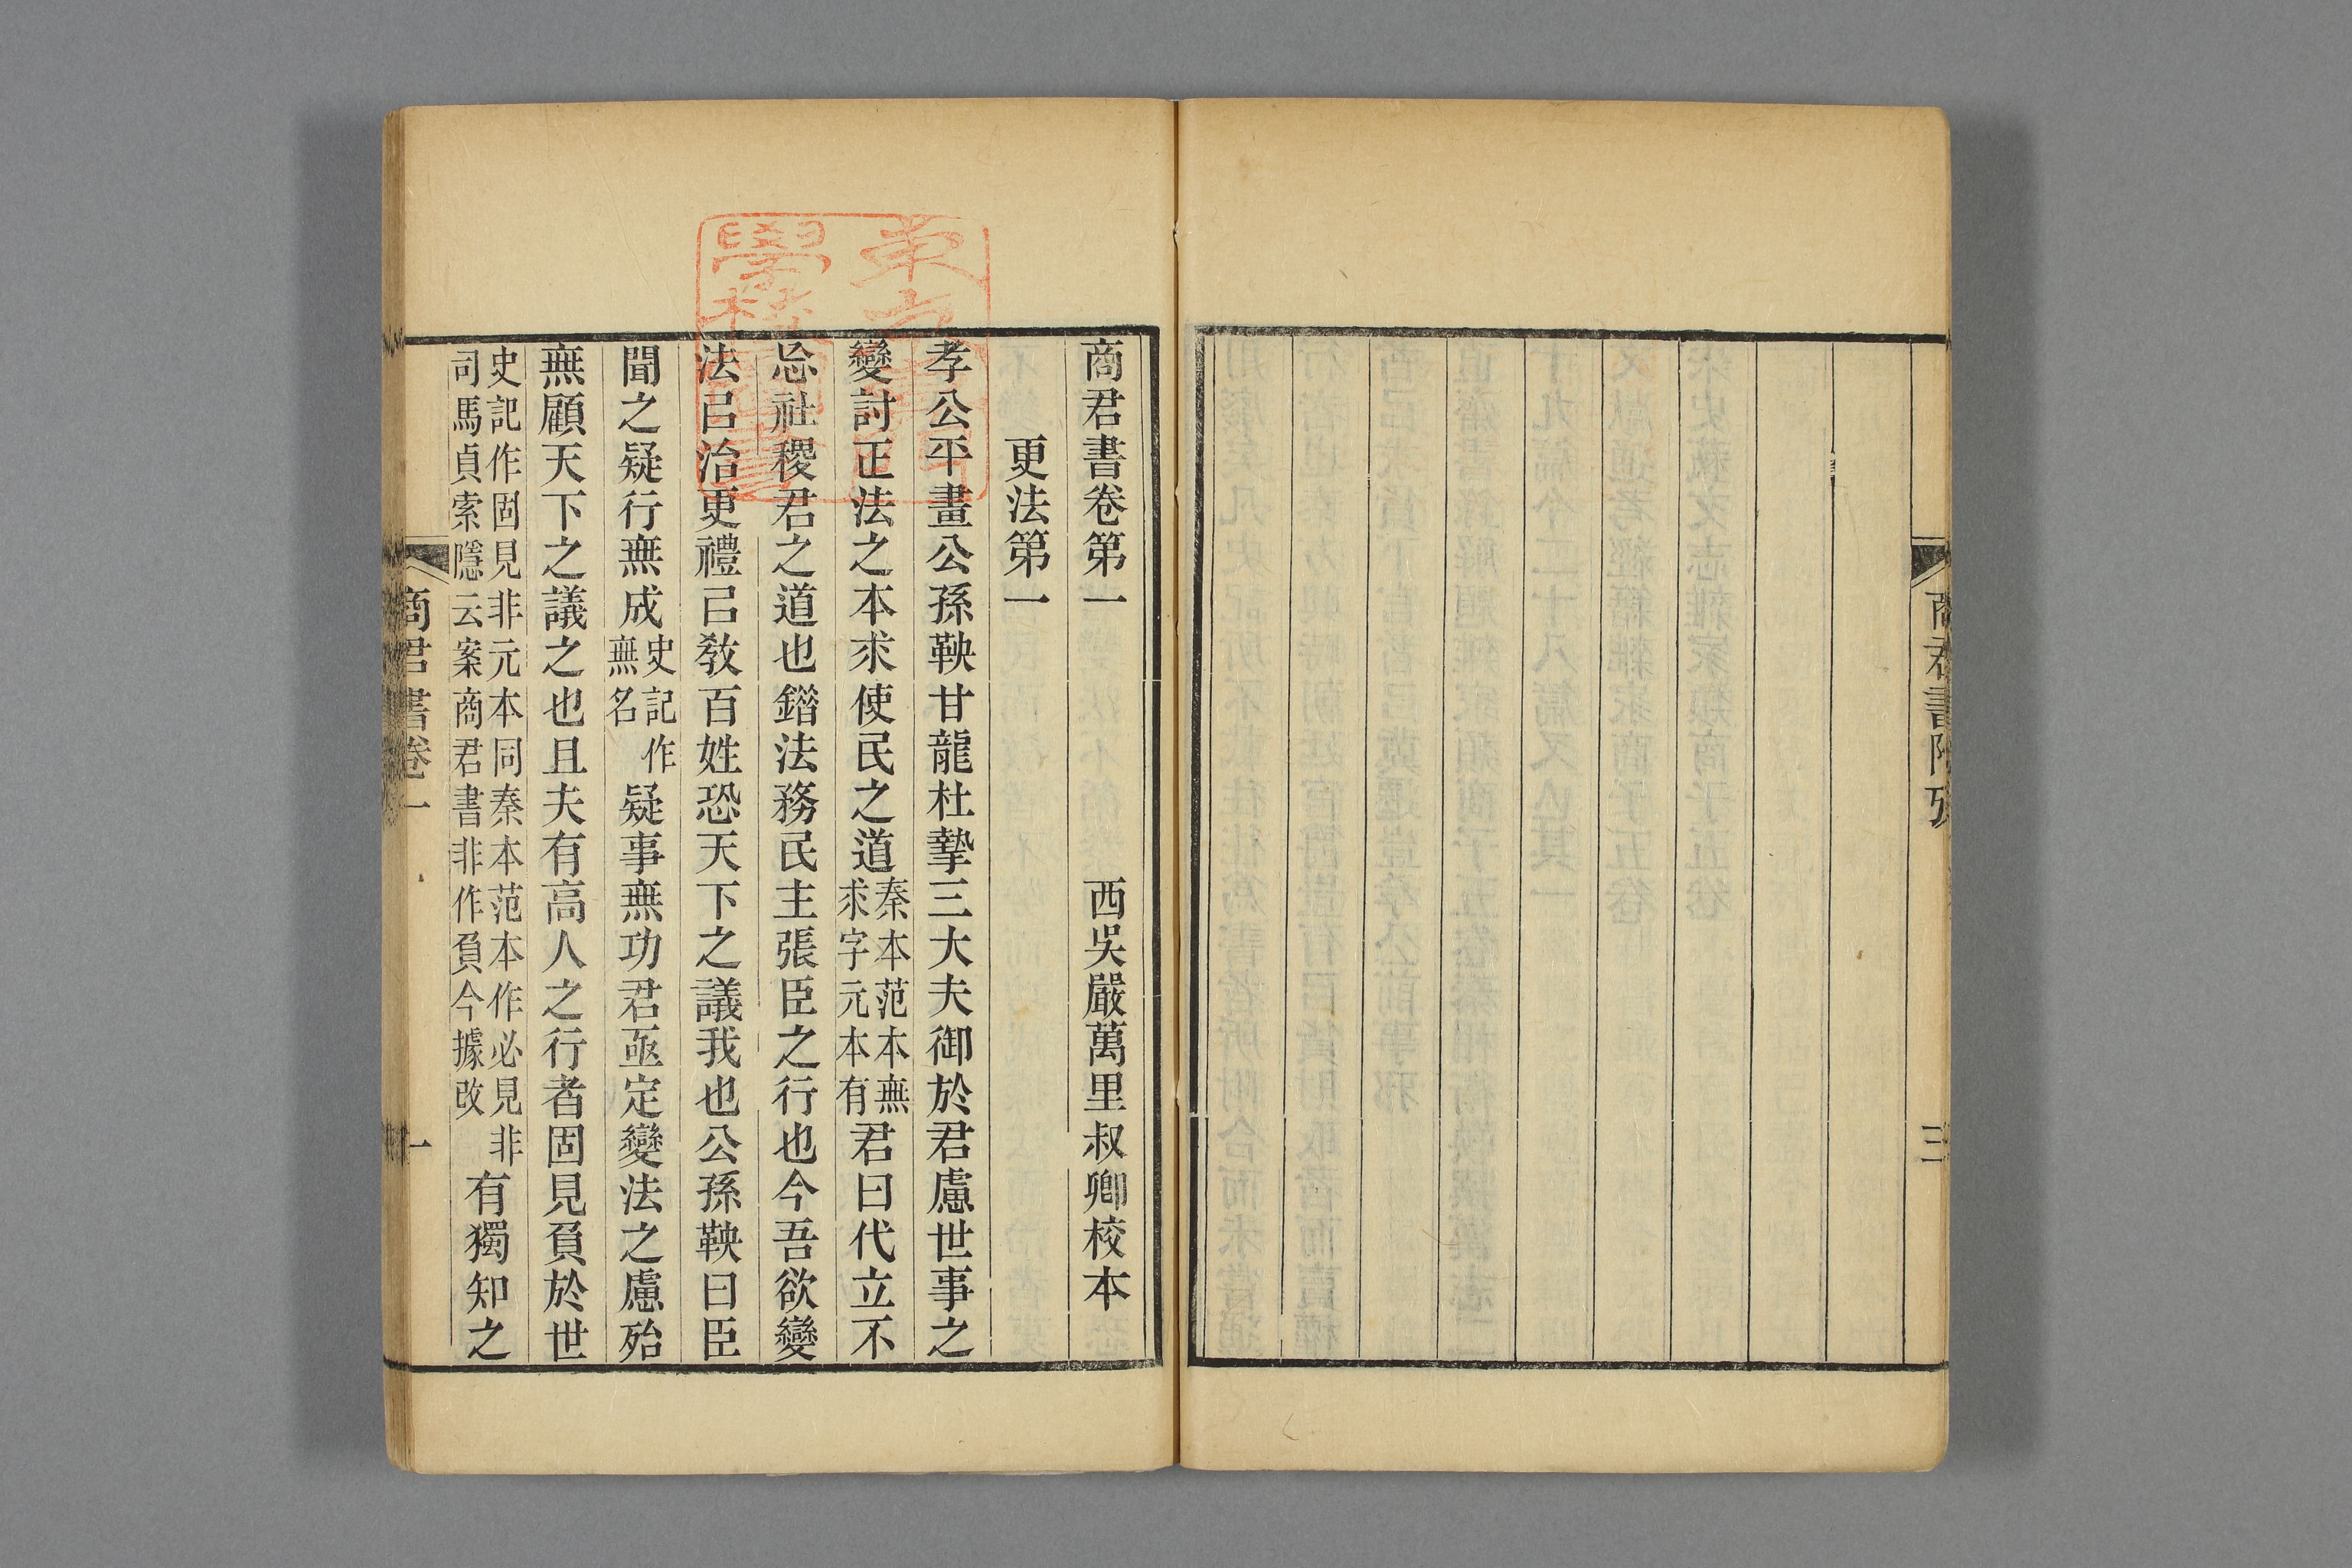 商君書附攷
三
商君書卷第一
西吳嚴萬里叔卿校本
更法第一
孝公平畫公孫鞅甘龍杜摯三大夫御於君慮世事之
變討正法之本求使民之道秦本范本無求字元本有君曰代立不
忘社稷君之道也錯法務民主張臣之行也今吾欲變
法㠯治更禮㠯敎百姓恐天下之議我也公孫鞅曰臣
聞之疑行無成史記作無名疑事無功君亟定變法之慮殆
無顧天下之議之也且夫有高人之行者固見負於世
史記作固見非元本同秦本范本作必見非司馬貞索隱云案商君書非作負今據改有獨知之
商君書卷一
一